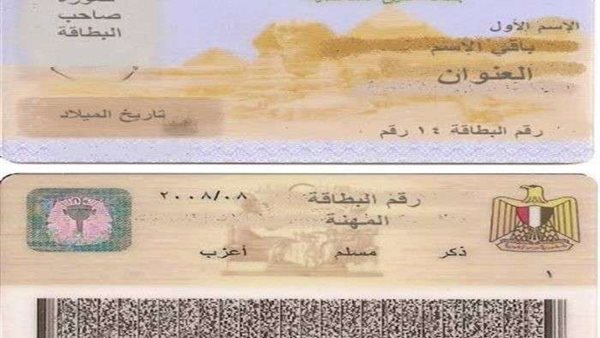 صاحب
البطاقة
الإسم الأول
باقى الاسم
العنوان
تاريخ الميلاد
رقم البطاقة ١٤ رقم
٢٠٠٨/٠٨
رقم البطاقة
المهنة
ذكر مسلم أعزب
١